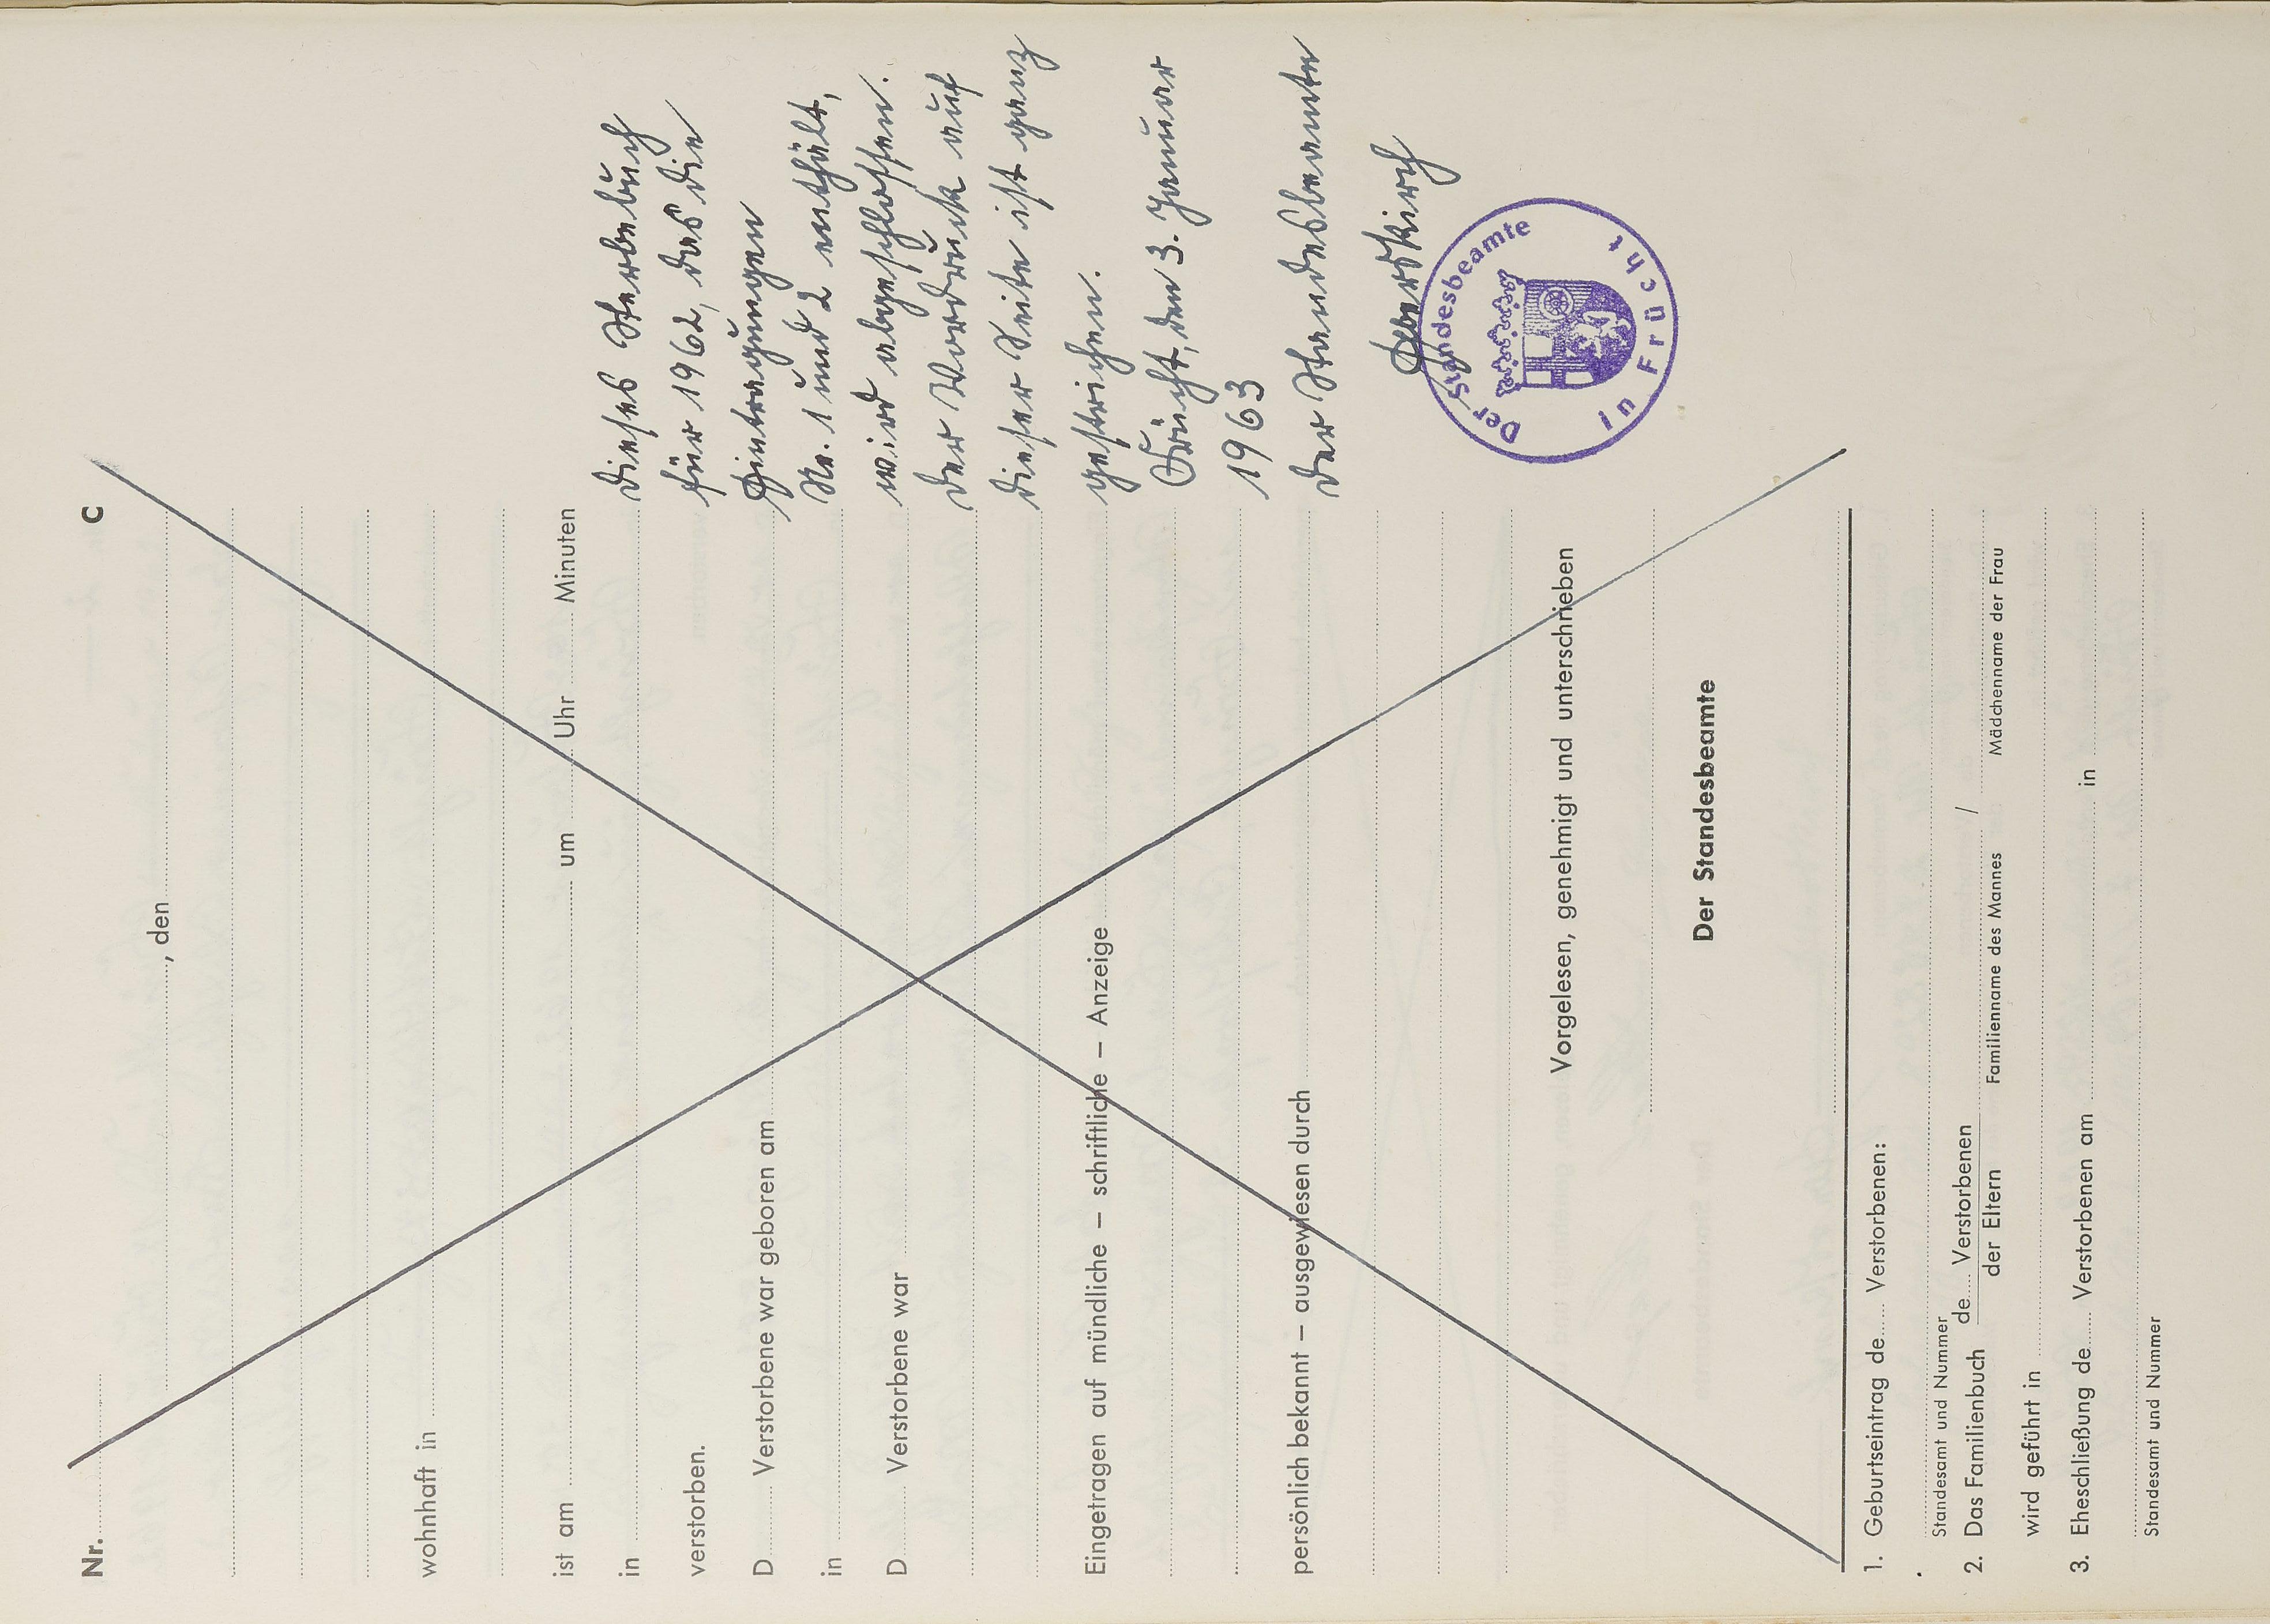 Nr.
C
, den
wohnhaft in
ist am um Uhr Minuten
in
verstorben.
D Verstorbene war geboren am
in
D Verstorbene war
Eingetragen auf mündliche – schriftliche – Anzeige
persönlich bekannt – ausgewiesen durch
Vorgelesen, genehmigt und unterschrieben
Der Standesbeamte
1. Geburtseintrag de Verstorbenen:
Standesamt und Nummer
2. Das Familienbuch de Verstorbenen /
der Eltern Familienname des Mannes Mädchenname der Frau
wird geführt in
3. Eheschließung de Verstorbenen am in
Standesamt und Nummer
Dieses Sterbebuch
für 1962, das die
Eintragungen
Nr. 1 und 2 enthält,
wird abgeschlossen.
Der Vordruck auf
dieser Seite ist ganz
gestrichen.
Frücht, den 3. Januar
1963
Der Standesbeamte
Der Standesbeamte
in Frücht